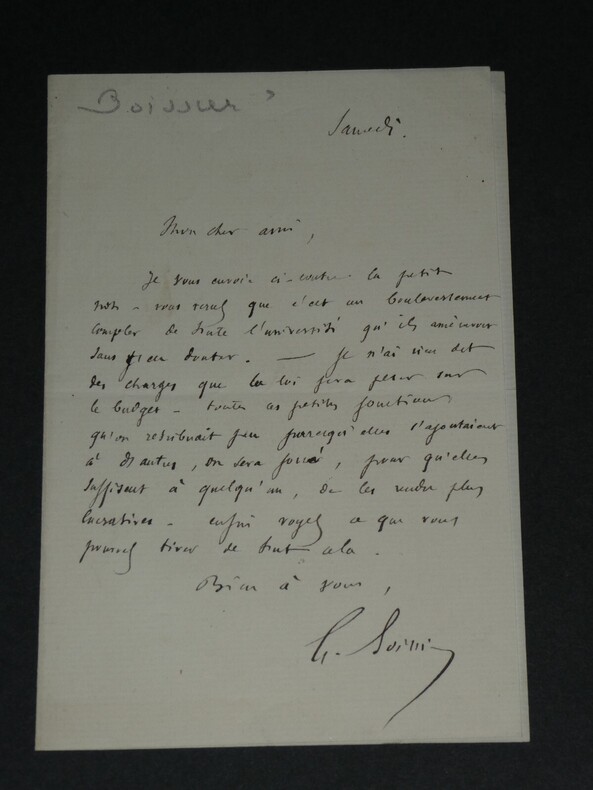 Boissier
Samedi.
Mon cher ami,
Je vous envoie ci-contre la petite
note - vous verrez que c'est un bouleversement
complet de toute l'université qu'ils amèneront
sans s'en douter. — Je n'ai rien dit
des charges que la loi fera peser sur
le budget - toutes ces petites fonctions
qu'on rétribuait peu parcequ'elles s'ajoutaient
à d'autres, on sera forcé, pour qu'elles
suffisent à quelqu'un, de les rendre plus
lucratives - enfin voyez ce que vous
pouvez tirer de tout cela.
Bien à vous,
G. Boissier